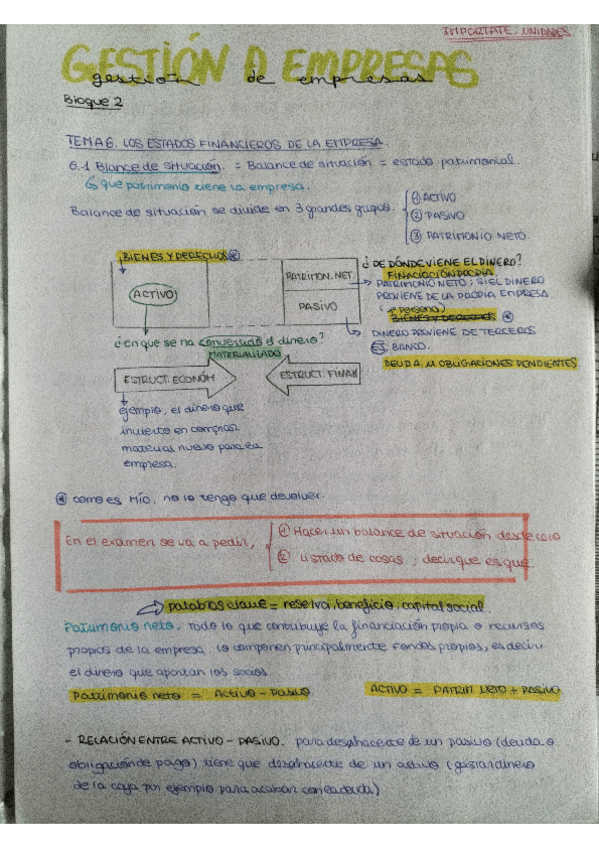 IMPORTATE: UNIDADES
GESTIÓN D EMPRESAS
gestión de empresas
Bloque 2
TEMA 6. LOS ESTADOS FINANCIEROS DE LA EMPRESA.
6.1 Blance de situación. = Balance de situación = estado patrimonial.
que patrimonio tiene la empresa.
Balance de situación se divide en 3 grandes grupos.
① ACTIVO
② PASIVO
③ PATRIMONIO NETO.
BIENES Y DERECHOS
ACTIVO
PATRIMON. NET
PASIVO
¿DE DÓNDE VIENE EL DINERO?
FINACIACIÓN PROPIA
PATRIMONIO NETO; SI EL DINERO
PROVIENE DE LA PROPIA EMPRESA
BIENES Y DERECHOS
DINERO PROVIENE DE TERCEROS
EJ: BANCO.
DEUDA U OBLIGACIONES PENDIENTES
¿en que se ha convertido el dinero?
MATERIALIZADO
ESTRUCT. ECONÓM
ESTRUCT. FINAN
ejemplo, el dinero que
invierto en comprar
materias nuevo para la
empresa.
como es MÍO, no lo tengo que devolver.
En el examen se va a pedir,
① Hacer un balance de situación desde cero
② Listado de cosas; decir que es que.
palabras clave = reserva, beneficio, capital social.
Patrimonio neto, todo lo que contribuye la financiación propia o recursos
propios de la empresa. Lo componen principalmente fondos propios, es decir
el dinero que aportan los socios.
Patrimonio neto = Activo - Pasivo
ACTIVO = PATRIM NETO + PASIVO
- RELACIÓN ENTRE ACTIVO - PASIVO. para deshacerte de un pasivo (deuda o
obligación de pago) tiene que deshacerte de un activo (gastar dinero
de la caja por ejemplo para acabar con la deuda)